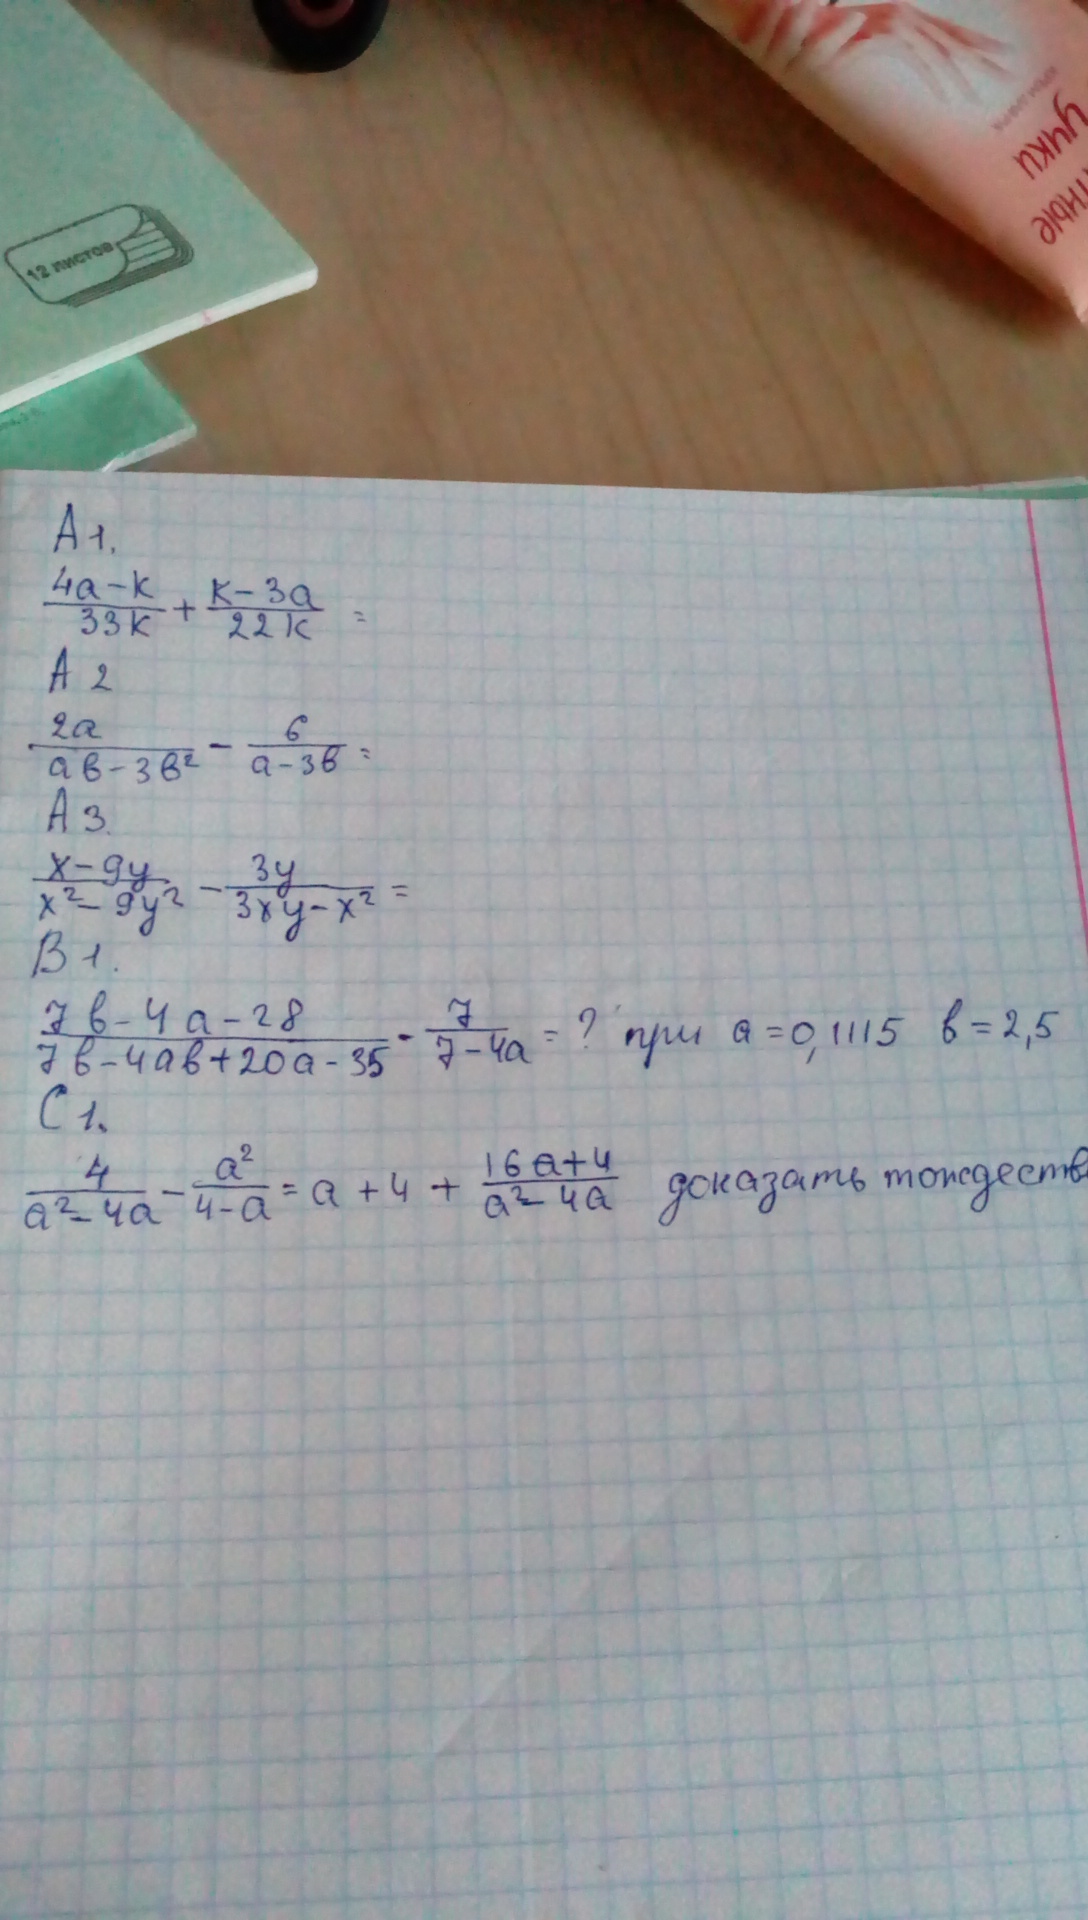 12 листов
учки
тные
А 1.
(4a-k)/(33k) + (k-3a)/(22k) =
А 2
(2a)/(aв-3в²) - 6/(a-3в) =
А 3.
(x-9y)/(x²-9y²) - (3y)/(3xy-x²) =
В 1.
(7в-4a-28)/(7в-4aв+20a-35) - 7/(7-4a) = ? при a=0,1115 в=2,5
С 1.
4/(a²-4a) - a²/(4-a) = a+4+ (16a+4)/(a²-4a) доказать тождеств